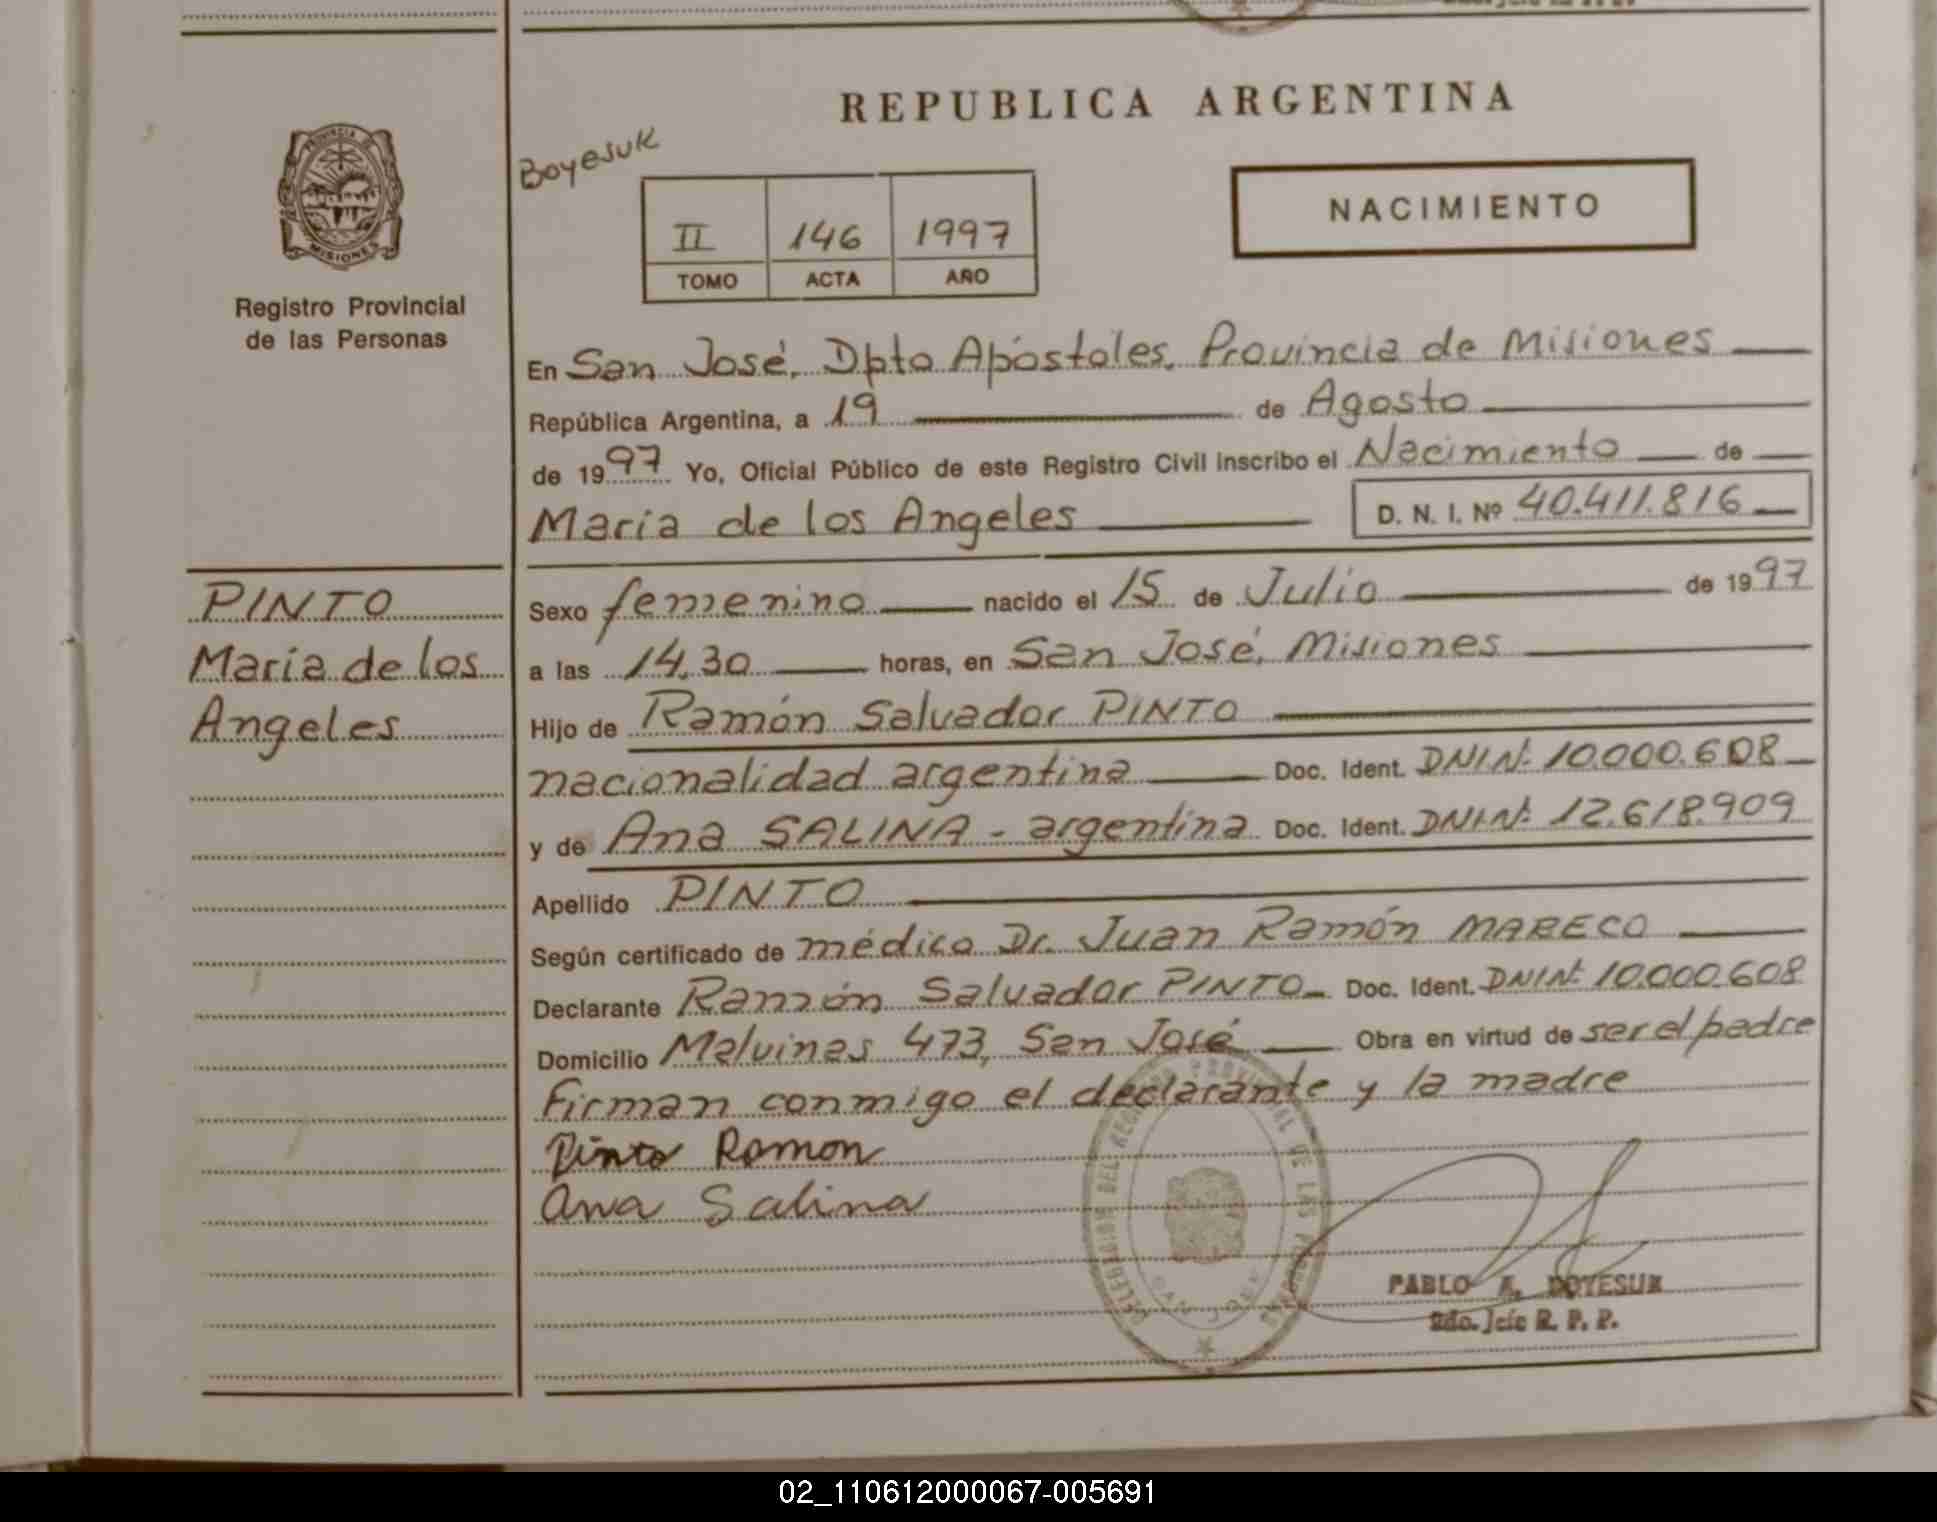 REPUBLICA ARGENTINA
Boyesuk
PROVINCIA DE
MISIONES
Registro Provincial
de las Personas
II 146 1997
TOMO ACTA AÑO
NACIMIENTO
En San José, Dpto Apóstoles, Provincia de Misiones
República Argentina, a 19 de Agosto
de 1997 Yo, Oficial Público de este Registro Civil inscribo el Nacimiento de
María de los Angeles D. N. I. Nº 40.411.816
PINTO
María de los
Angeles
Sexo femenino nacido el 15 de Julio de 1997
a las 14,30 horas, en San José, Misiones
Hijo de Ramón Salvador PINTO
nacionalidad argentina Doc. Ident. DNI Nº: 10.000.608
y de Ana SALINA - argentina Doc. Ident. DNI Nº: 12.618.909
Apellido PINTO
Según certificado de médico Dr. Juan Ramón MARECO
Declarante Ramón Salvador PINTO Doc. Ident. DNI Nº: 10.000.608
Domicilio Malvinas 473, San José Obra en virtud de ser el padre
Firman conmigo el declarante y la madre
Pinto Ramon
Ana Salina
DELEGACION DEL REGISTRO PROVINCIAL DE LAS PERSONAS
SAN JOSE
PABLO A. BOYESUK
2do. Jefe R. P. P.
02_110612000067-005691